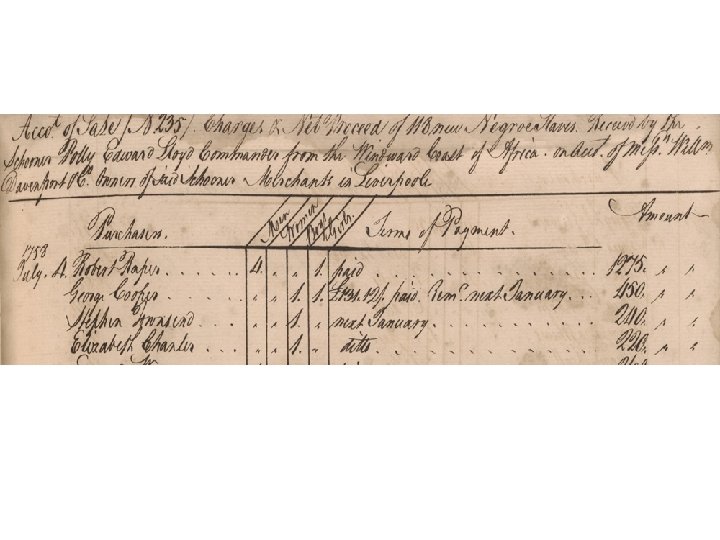 Acco.t of Sale (No 235) Charges & Net Proceed of 118 new Negroe Slaves. Received by the
Schooner Polly Edward Lloyd Commander from the Windward Coast of Africa. on Acco.t of Mess.rs Will.m
Davenport & Co. Owners of said Schooner Merchants in Liverpoole
Purchasers. Men Women Boys Girls Terms of Payment. Amount
1758
July. 4. Robert Raper 4. " " 1. paid 1275. " "
George Cooper " " 1. 1. paid. Rem.r next January 450. " "
Stephen Townsend " " 1. " next January 240. " "
Elizabeth Chanler " " 1. " ditto 220. " "